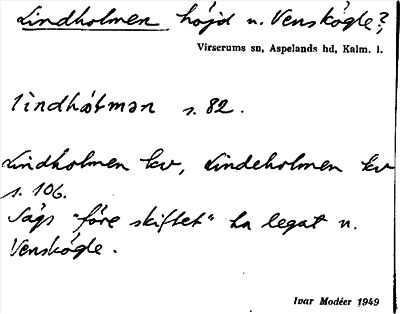 Lindholmen höjd n. Venskögle?
Virserums sn, Aspelands hd, Kalm. l.
lìndhåtmən s. 82.
Lindholmen kv, Lindeholmen kv
s. 106.
Sägs "före skiftet" ha legat n.
Venskögle.
Ivar Modéer 1949